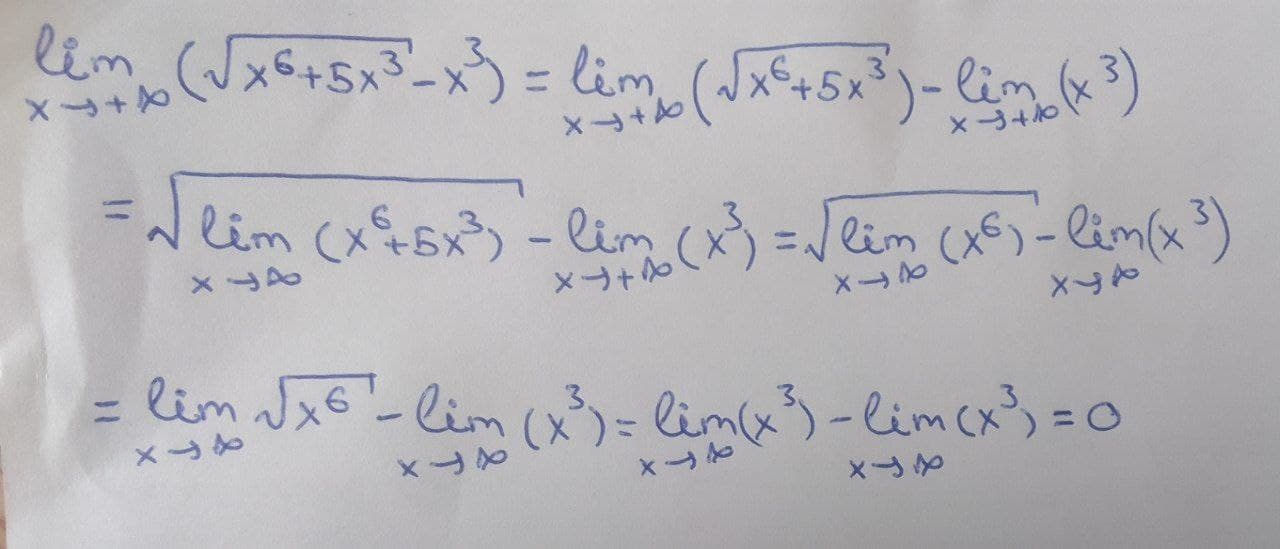 lim x→+∞ (√(x⁶+5x³) - x³) = lim x→+∞ (√(x⁶+5x³)) - lim x→+∞ (x³)
= √(lim x→∞ (x⁶+5x³)) - lim x→+∞ (x³) = √(lim x→∞ (x⁶)) - lim x→∞ (x³)
= lim x→∞ √(x⁶) - lim x→∞ (x³) = lim x→∞ (x³) - lim x→∞ (x³) = 0